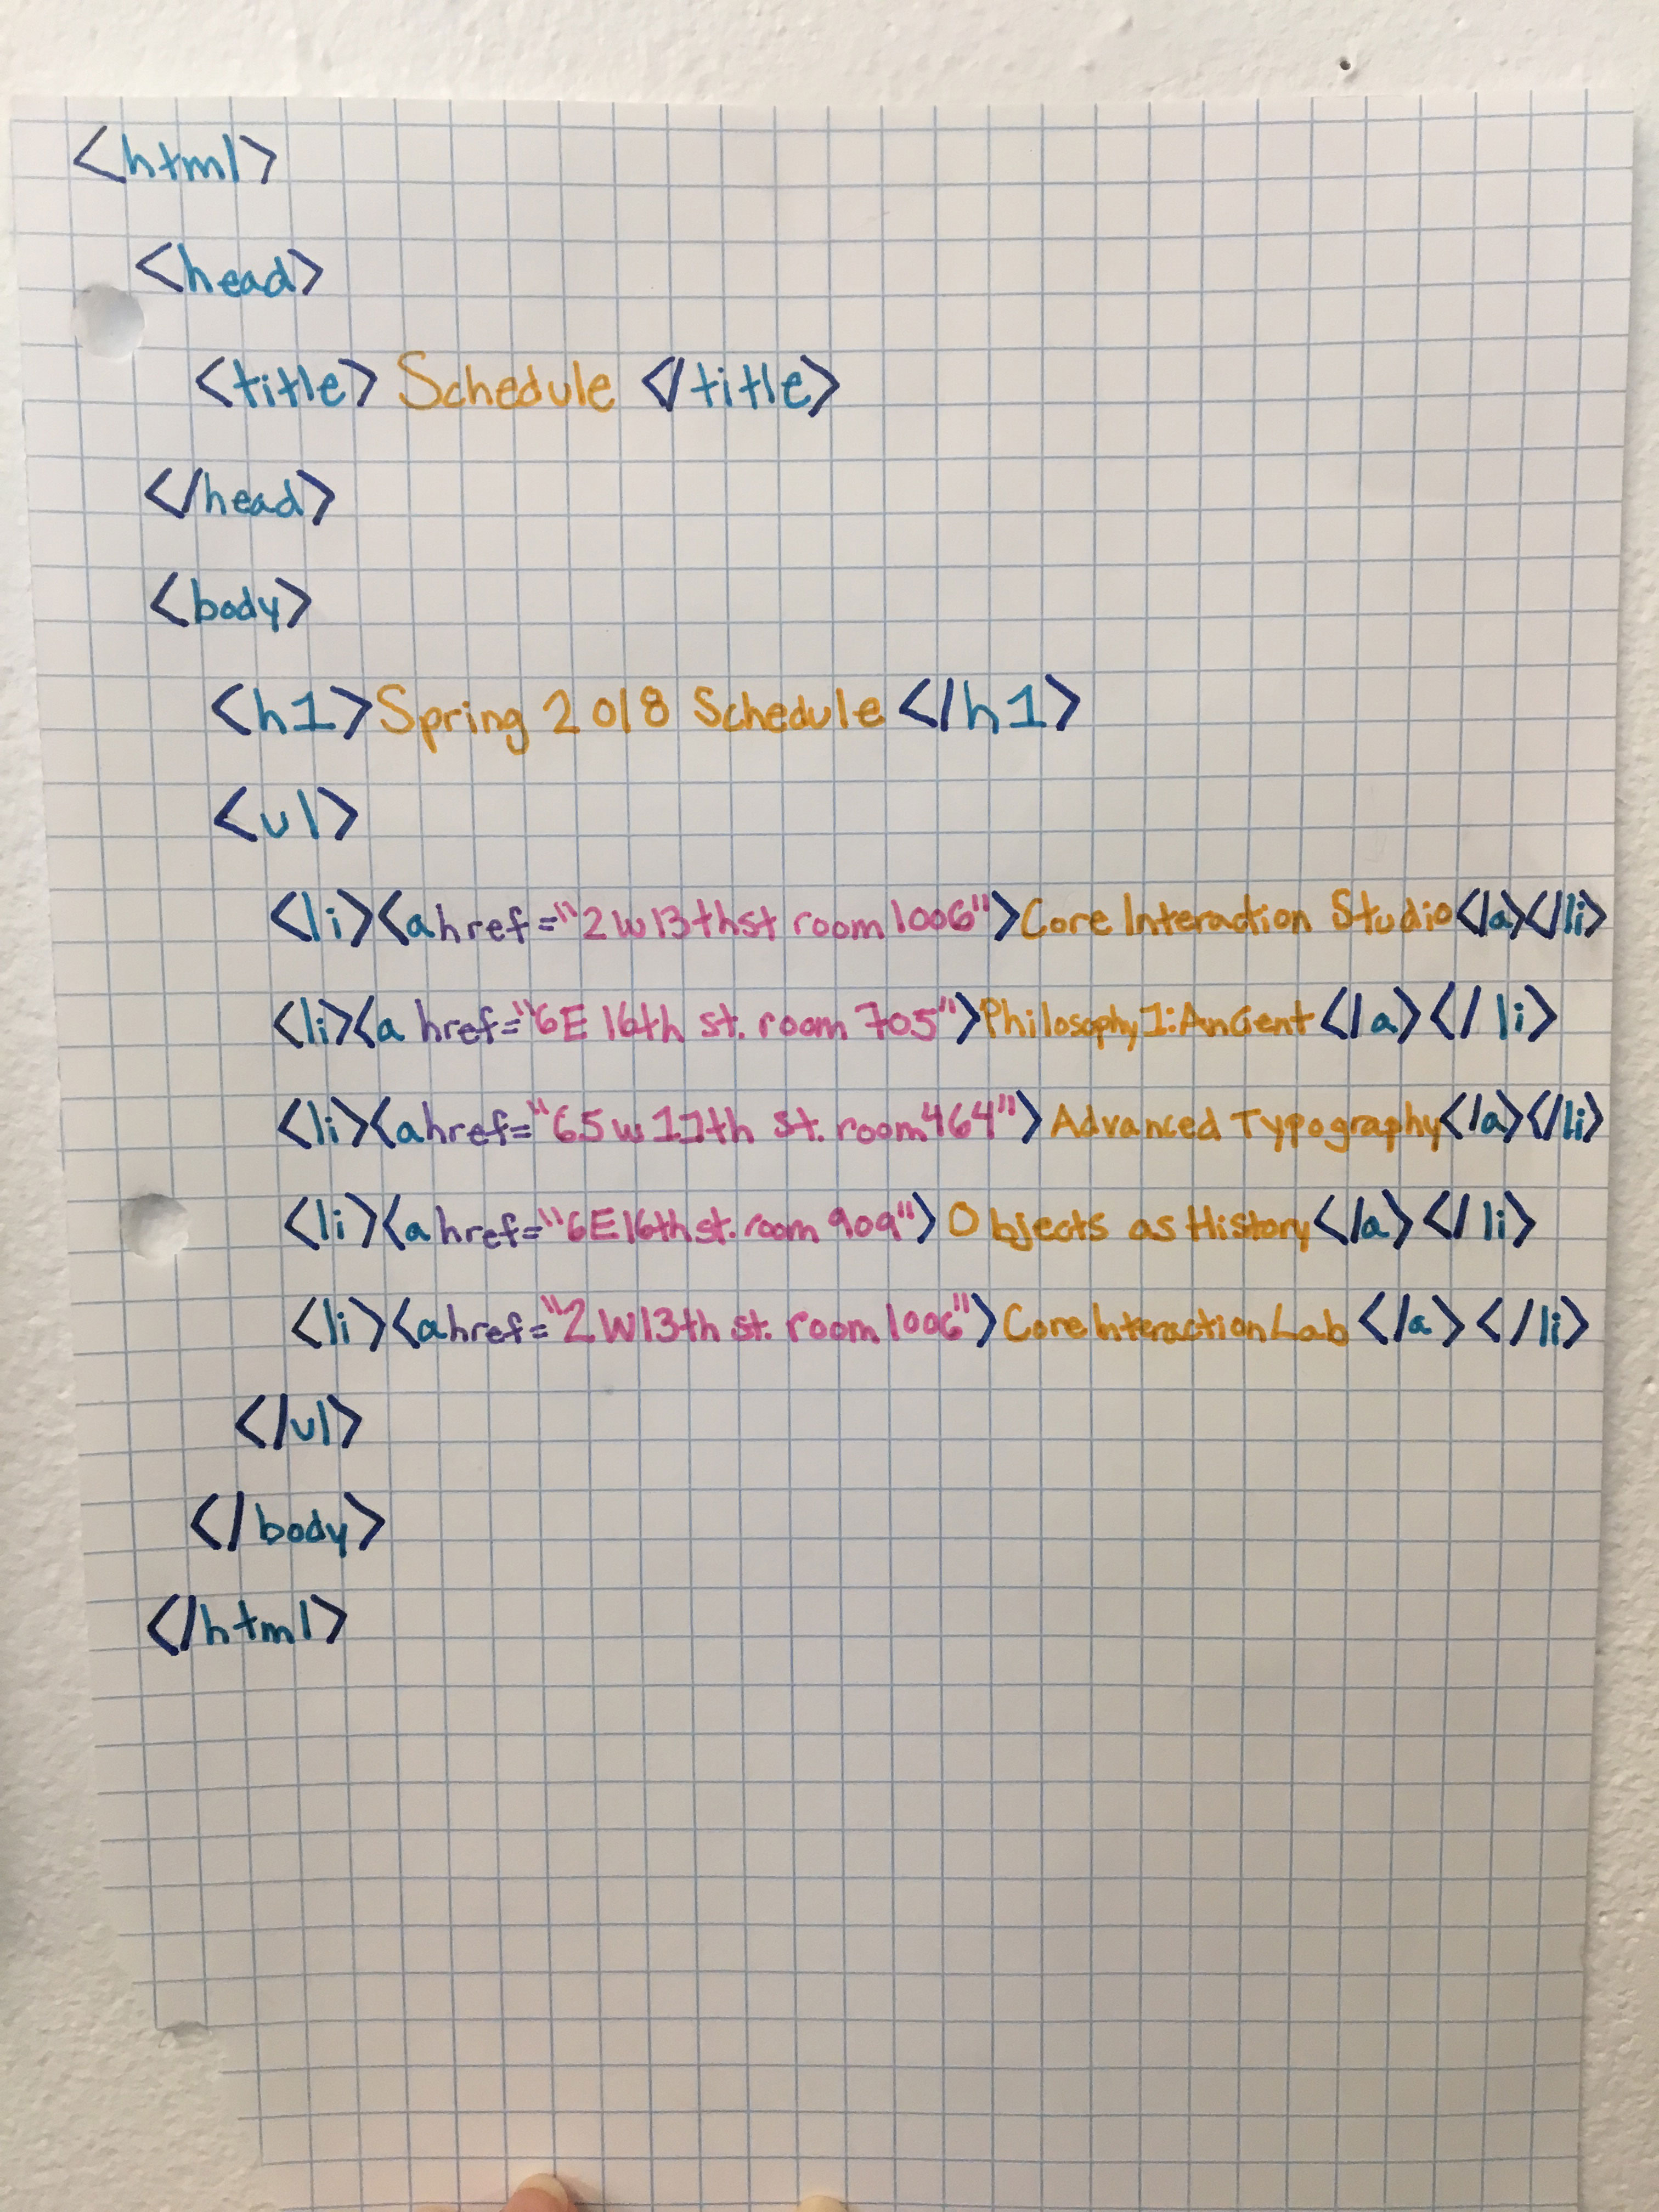 <html>
<head>
<title> Schedule </title>
</head>
<body>
<h1>Spring 2018 Schedule </h1>
<ul>
<li><a href="2 w 13th st room 1006">Core Interaction Studio</a></li>
<li><a href="6E 16th st. room 705">Philosophy 1: Ancient </a></li>
<li><a href="65 w 11th st. room 464"> Advanced Typography</a></li>
<li><a href="6E 16th st. room 909"> Objects as History</a></li>
<li><a href="2 W 13th st. room 1006">Core Interaction Lab </a></li>
</ul>
</body>
</html>